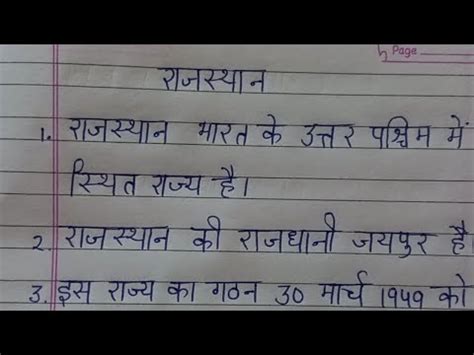 Page
राजस्थान
1. राजस्थान भारत के उत्तर पश्चिम में
स्थित राज्य है।
2. राजस्थान की राजधानी जयपुर है
3. इस राज्य का गठन 30 मार्च 1949 को